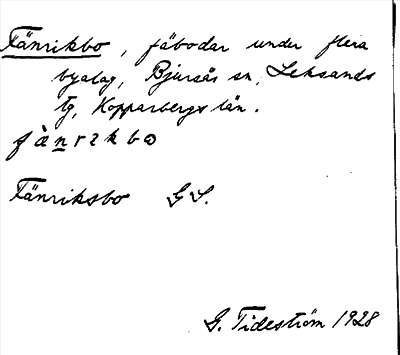 Fänrikbo, fäbodar under flera
byalag, Bjursås sn, Leksands
tg, Kopparbergs län.
fànrikbo
Fänriksbo GS.
G. Tideström 1928